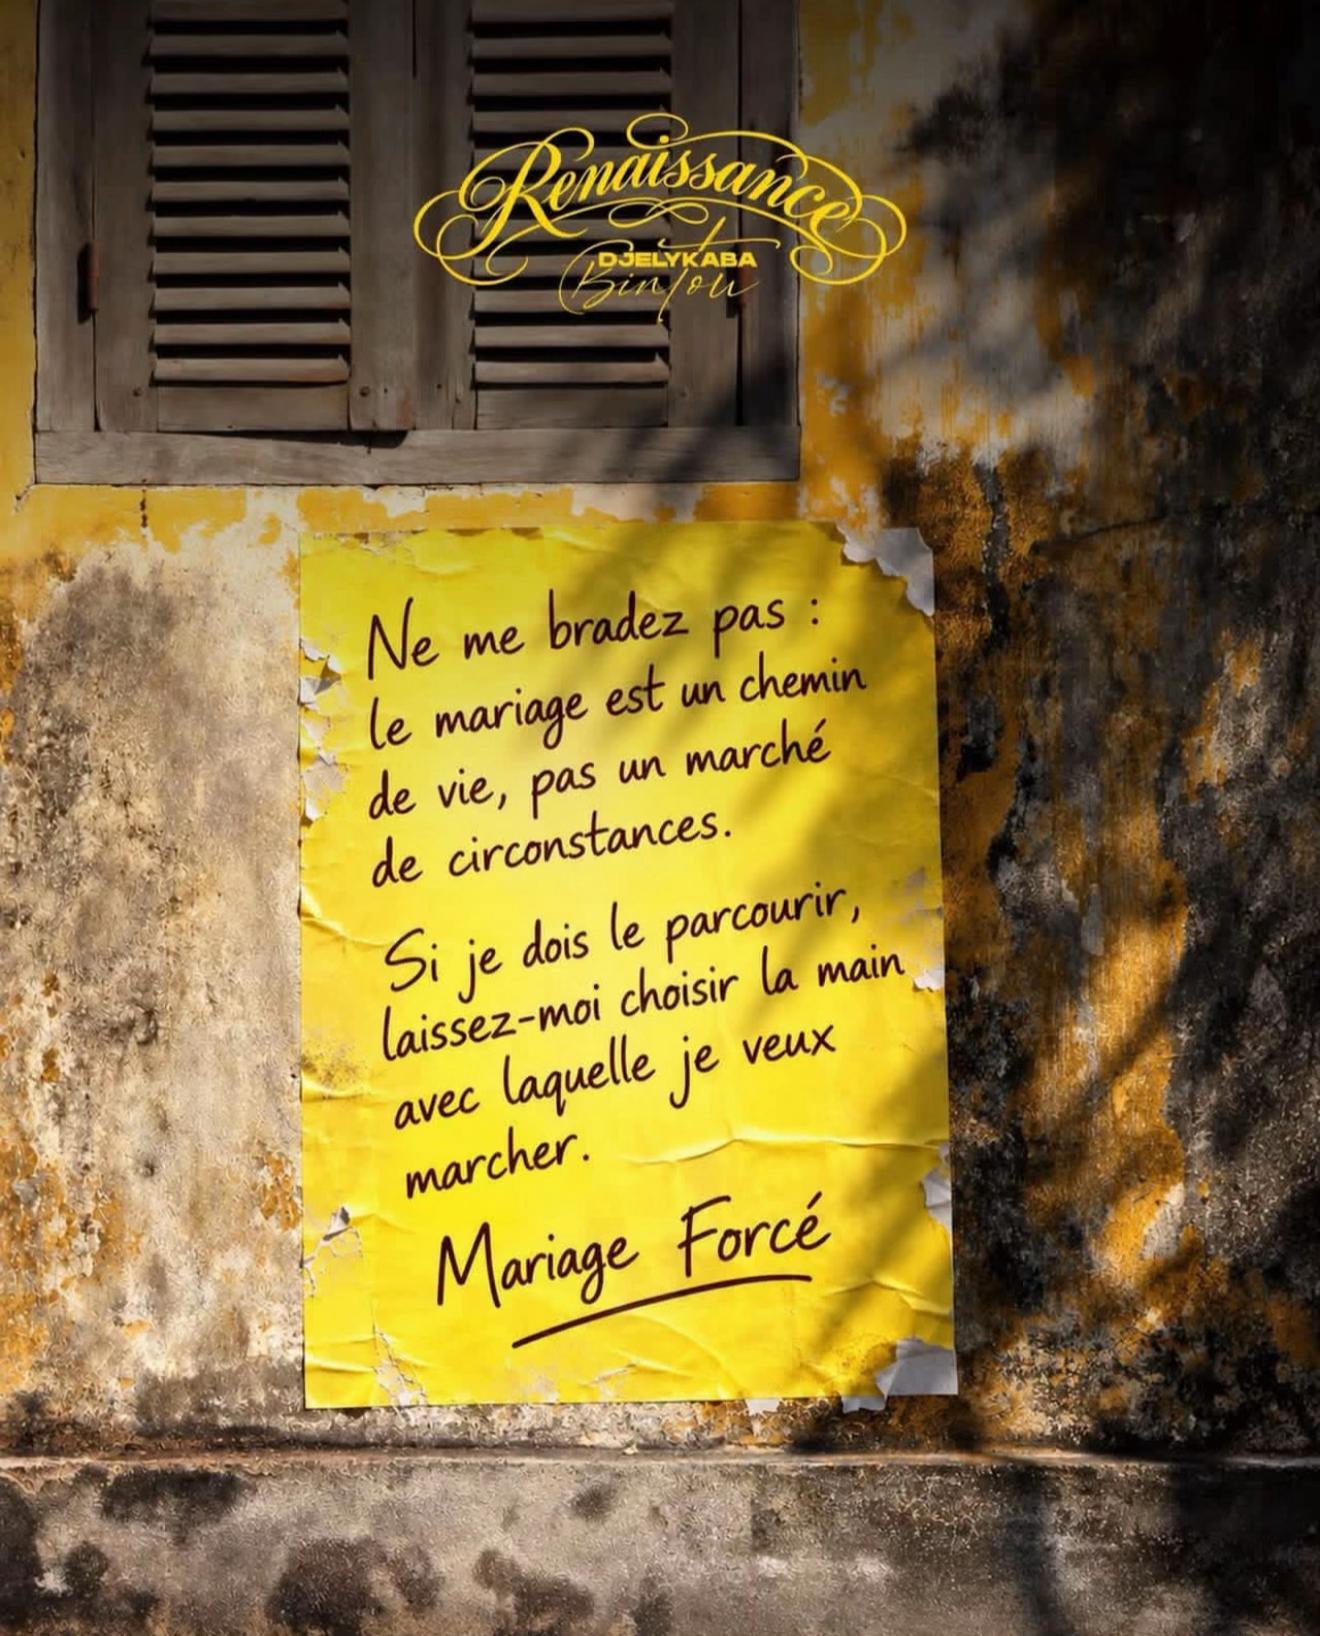 Renaissance
DJELYKABA
Bintou
Ne me bradez pas :
le mariage est un chemin
de vie, pas un marché
de circonstances.
Si je dois le parcourir,
laissez-moi choisir la main
avec laquelle je veux
marcher.
Mariage Forcé